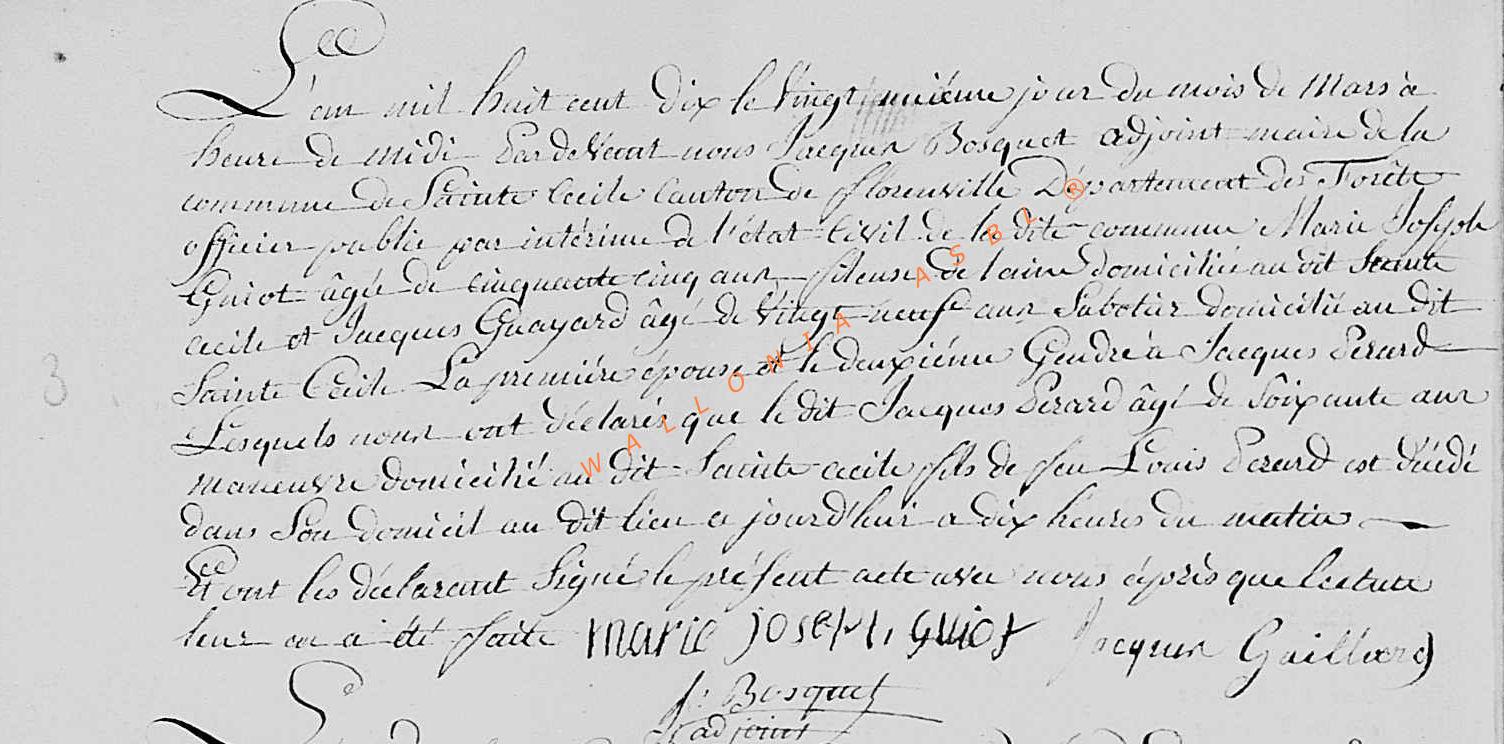 L'an mil huit cent dix le vingt unième jour du mois de Mars à
heure de midi Pardevant nous Jacques Bosquet adjoint maire de la
commune de Sainte Cecile Canton de florenville Département des Forêts
officier public par intérime de l'état Civil de la dite commune Marie Joseph
Guiot âgée de cinquante cinq ans fileuse de laine domiciliée au dit Sainte
Cecile et Jacques Guayard âgé de vingt neuf ans Sabotier domicilié au dit
Sainte Cecile La première épouse et le deuxième Gendre à Jacques Perard
Lesquels nous ont déclarés que le dit Jacques Perard âgé de soixante ans
maneuvre domicilié au dit Sainte Cecile fils de feu Louis Perard est décédé
dans son domicil au dit lieu ce jourd'hui a dix heures du matin
Et ont les déclarant signé le présent acte avec nous après que lecture
leur en a été faite Marie Joseph Guiot Jacques Gaillard
J: Bosquet
adjoint
3
WALLONIA ASBL ®